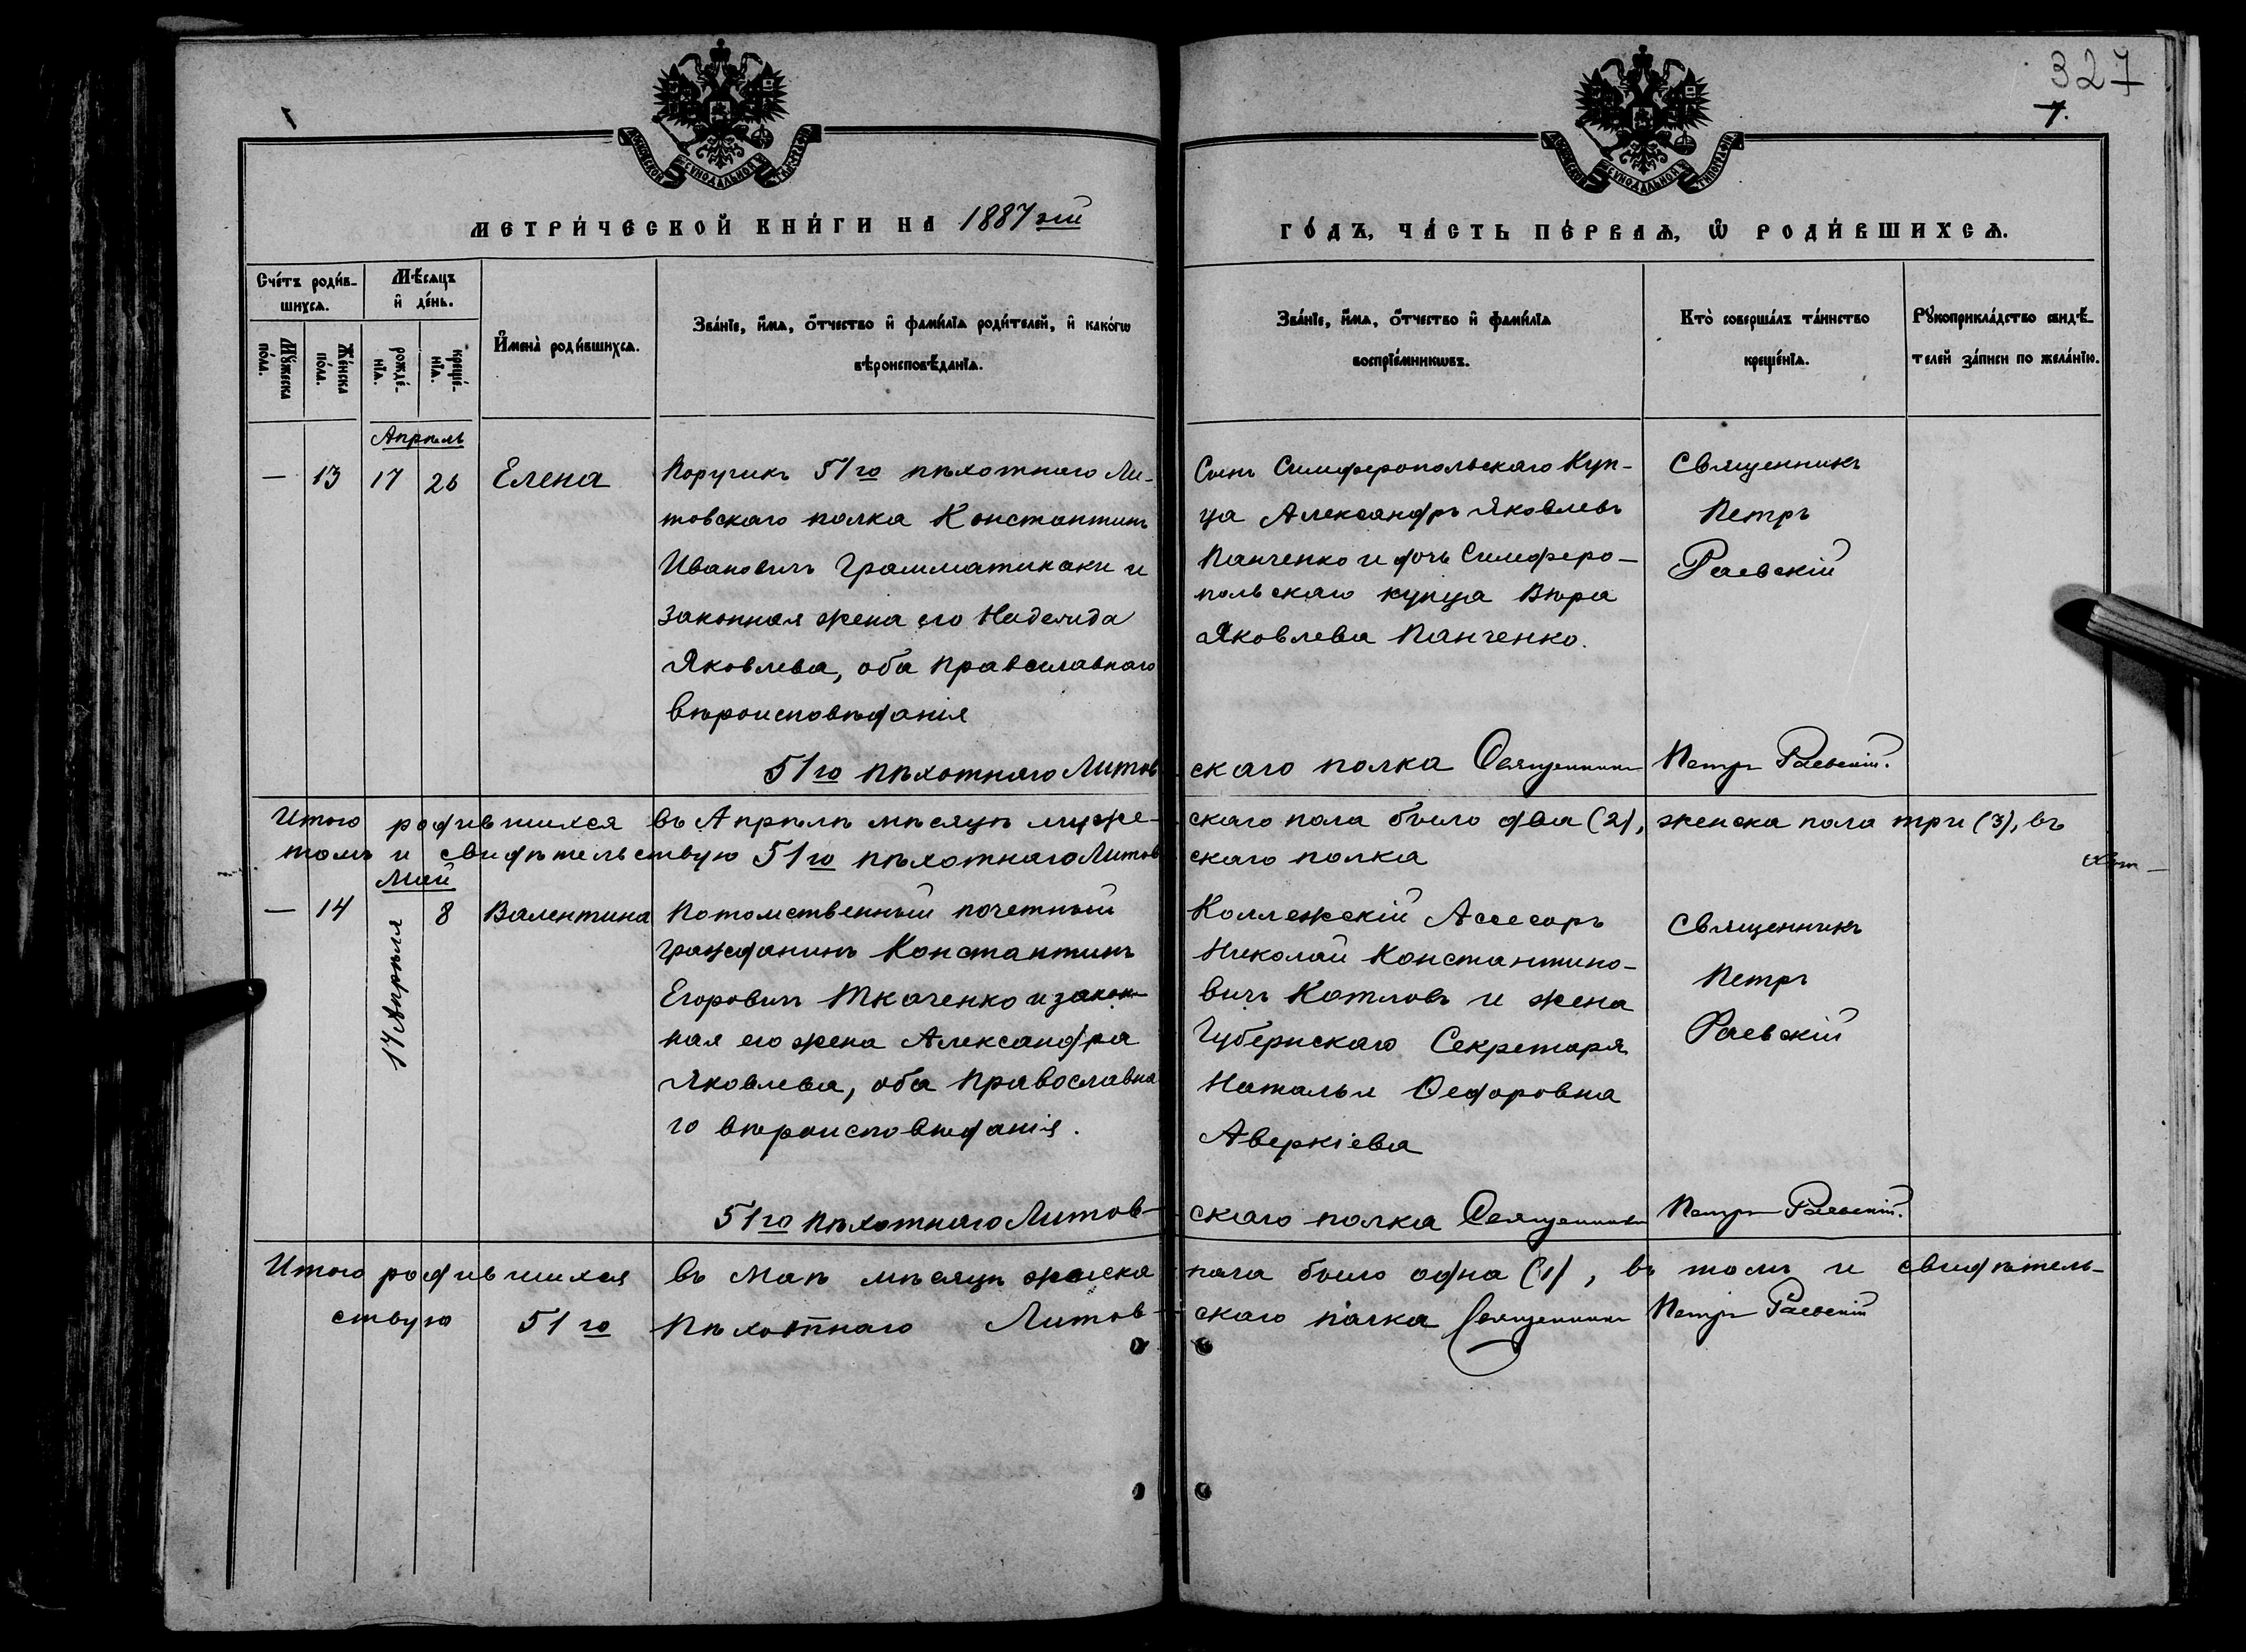 327
7.
МОСКОВСКОЙ СѴНОДАЛЬНОЙ ТИПОГРАФІИ
МОСКОВСКОЙ СѴНОДАЛЬНОЙ ТИПОГРАФІИ
МЕТРИ́ЧЕСКОЙ КНИ́ГИ НА 1887 ой
ГО́ДЪ, ЧА́СТЬ ПЕ́РВАѦ, Ѡ РОДИ́ВШИХСѦ.
Сче́тъ роди́в-
шихсѧ.
Мѣ́сѧцъ
и҆ де́нь.
Мꙋ́жеска
по́ла.
Же́нска
по́ла.
рожде́-
нїѧ.
креще́-
нїѧ.
И҆мена̀ роди́вшихсѧ.
Зва́нїе, и҆́мѧ, ѻ҆́тчество и҆ фамі́лїѧ роди́телей, и҆ како́гѡ
вѣроисповѣ́данїѧ.
Зва́нїе, и҆́мѧ, ѻ҆́тчество и҆ фамі́лїѧ
воспрїе́мникѡвъ.
Кто̀ соверша́лъ та́инство
креще́нїѧ.
Рꙋкоприкла́дство свидѣ́-
телей за́писи по жела́нїю.
Апрѣль
— 13 17 26 Елена
Поручикъ 51го пѣхотнаго Ли-
товскаго полка Константинъ
Ивановичъ Грамматикаки и
законная жена его Надежда
Яковлева, оба православнаго
вѣроисповѣданія
Сынъ Симферопольскаго Куп-
ца Александръ Яковлевъ
Панченко и дочь Симферо-
польскаго купца Вѣра
Яковлева Панченко.
Священникъ
Петръ
Раевскій
51го пѣхотнаго Литовскаго полка Священникъ Петръ Раевскій.
Итого родившихся въ Апрѣлѣ мѣсяцѣ муже-скаго пола было два (2), женска пола три (3), въ
томъ и свидѣтельствую 51го пѣхотнаго Литовскаго полка
Май
— 14 17 Апрѣля 8 Валентина
Потомственный почетный
гражданинъ Константинъ
Егоровичъ Ткаченко и закон-
ная его жена Александра
Яковлева, оба Православна
го вѣроисповѣданія.
Коллежскій Ассесоръ
Николай Константино-
вичъ Котловъ и жена
Губернскаго Секретаря
Наталья Ѳедоровна
Аверкіева
Священникъ
Петръ
Раевскій
51го пѣхотнаго Литов-скаго полка Священникъ Петръ Раевскій.
Итого родившихся въ Маѣ мѣсяцѣ женска пола было одна (1), въ томъ и свидѣтель-
ствую 51го Пѣхотнаго Литов-скаго полка Священникъ Петръ Раевскій